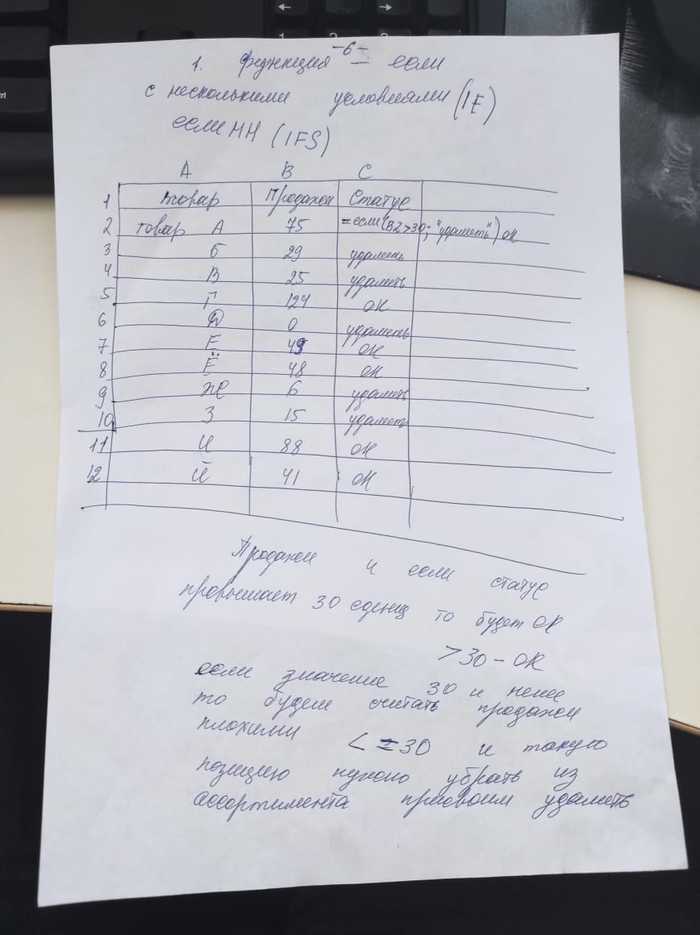 -6-
1. функция - если
с несколькими условиями (IF)
если МН (IFS)
A B C
1 товар Продажи Статус
2 товар А 75 =если(B2>30; "удалить") ОК
3 Б 29 удалить
4 В 25 удалить
5 Г 124 ОК
6 Д 0 удалить
7 Е 49 ОК
8 Ё 48 ОК
9 Ж 6 удалить
10 З 15 удалить
11 И 88 ОК
12 Й 41 ОК
Продажи и если статус
превышает 30 единиц то будет ОК
>30 - ОК
если значение 30 и менее
то будем считать продажи
плохими <=30 и такую
позицию нужно убрать из
ассортимента присвоим удалить